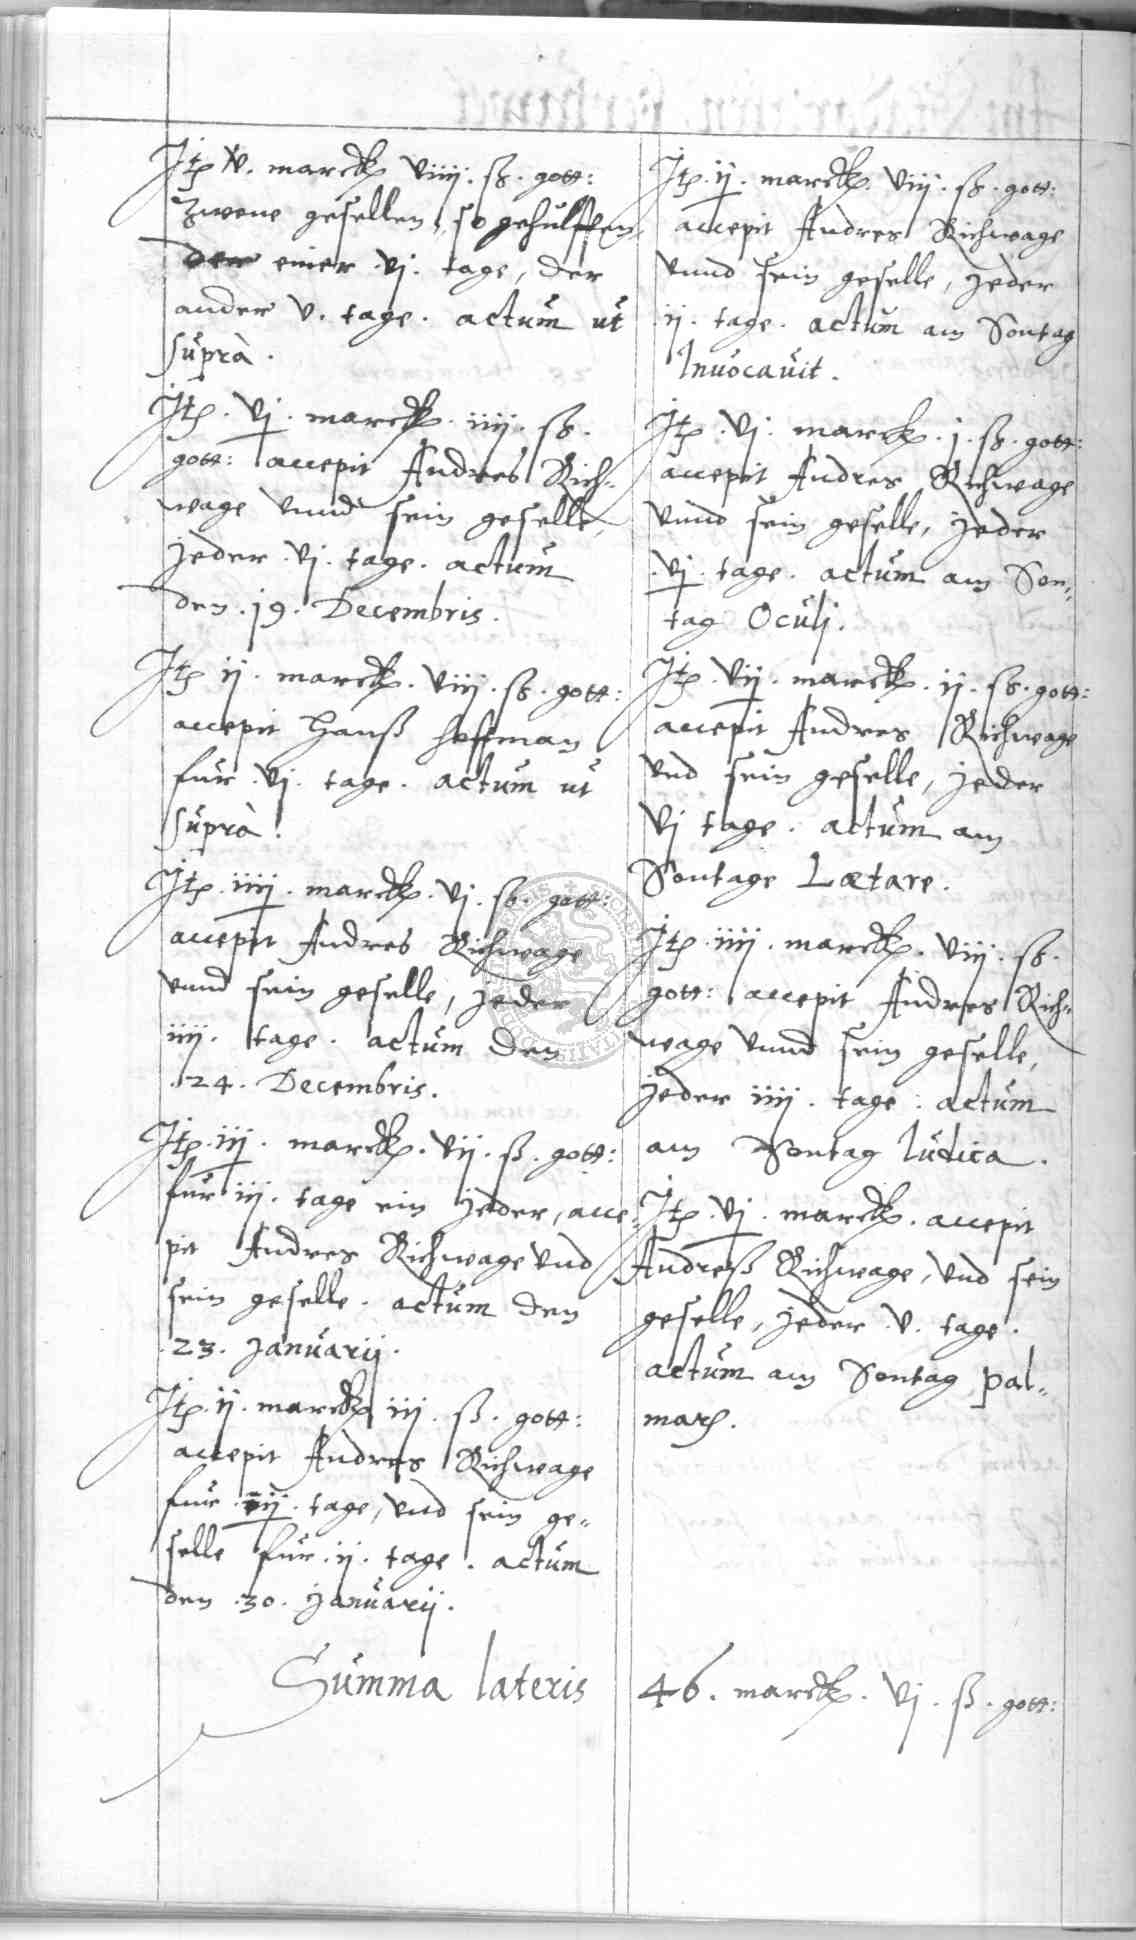 Jtp v. marckh viiij. ß. gott:
Zwene gesellen, so gehulffen,
der einer .vj. tage, der
ander v. tage. actum ut
suprà.
Jtp. vj. marckh. iiij. ß.
gott: accepit Andres Rich-
wage vnnd sein geselle,
jeder .vj. tage. actum
den .19. Decembris.
Jtp ij. marckh. viij. ß. gott:
accepit Hanß Hoffman
fur .vj. tage. actum ut
suprà.
Jtp. iiij. marckh. vj. ß. gott:
accepit Andres Richwage
vnnd sein geselle, jeder
iiij. tage. actum den
.24. Decembris.
Jtp. iij. marckh. vij. ß. gott:
fur iij. tage ein jeder, acce-
pit Andres Richwage vnd
sein geselle. actum den
.23. Januarij.
Jtp. ij. marckh iij. ß. gott:
accepit Andres Richwage
fur iij. tage, vnd sein ge-
selle fur .ij. tage. actum
den .30. Januarij.
Jtp. ij. marckh. viij. ß. gott:
accepit Andres Richwage
vnnd sein geselle, jeder
.ij. tage. actum am Sontag
Inuocauit.
Jtp. vj. marckh. j. ß. gott:
accepit Andres Richwage
vnnd sein geselle, jeder
.vj. tage. actum am Son-
tag Oculj.
Jtp. vij. marckh. ij. ß. gott:
accepit Andres Richwage
vnd sein geselle, jeder
vj tage. actum am
Sontage Lætare.
Jtp. iiij. marckh. viij. ß.
gott: accepit Andres Rich-
wage vnnd sein geselle,
jeder iiij. tage. actum
am Sontag Iudica.
Jtp. vj. marckh. accepit
Andreß Richwage, vnd sein
geselle, jeder .v. tage.
actum am Sontag pal-
mar.
Summa lateris 46. marckh. vj. ß. gott: